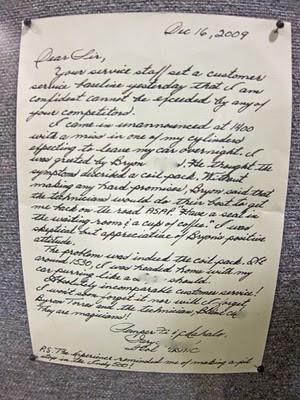 Dec 16, 2009
Dear Sir,
Your service staff set a customer
service baseline yesterday that I am
confident cannot be exceeded by any of
your competitors.
I came in unannounced at 1400
with a miss in one of my cylinders
expecting to leave my car overnight. I
was greeted by Bryon . He thought the
symptoms described a coil pack. Without
making any hard promises, Bryon said that
the technicians would do their best to get
me back on the road ASAP. Have a seat in
the waiting room & a cup of coffee. I was
skeptical but appreciative of Bryon's positive
attitude.
The problem was indeed the coil pack. At
around 1530, I was headed home with my
car purring like a should.
Absolutely incomparable customer service!
I won't soon forget it nor will I forget
Byron and the technician,
They are magicians!
Semper Fi
P.S. The experience reminded me of making a pit
stop in the Indy 500!